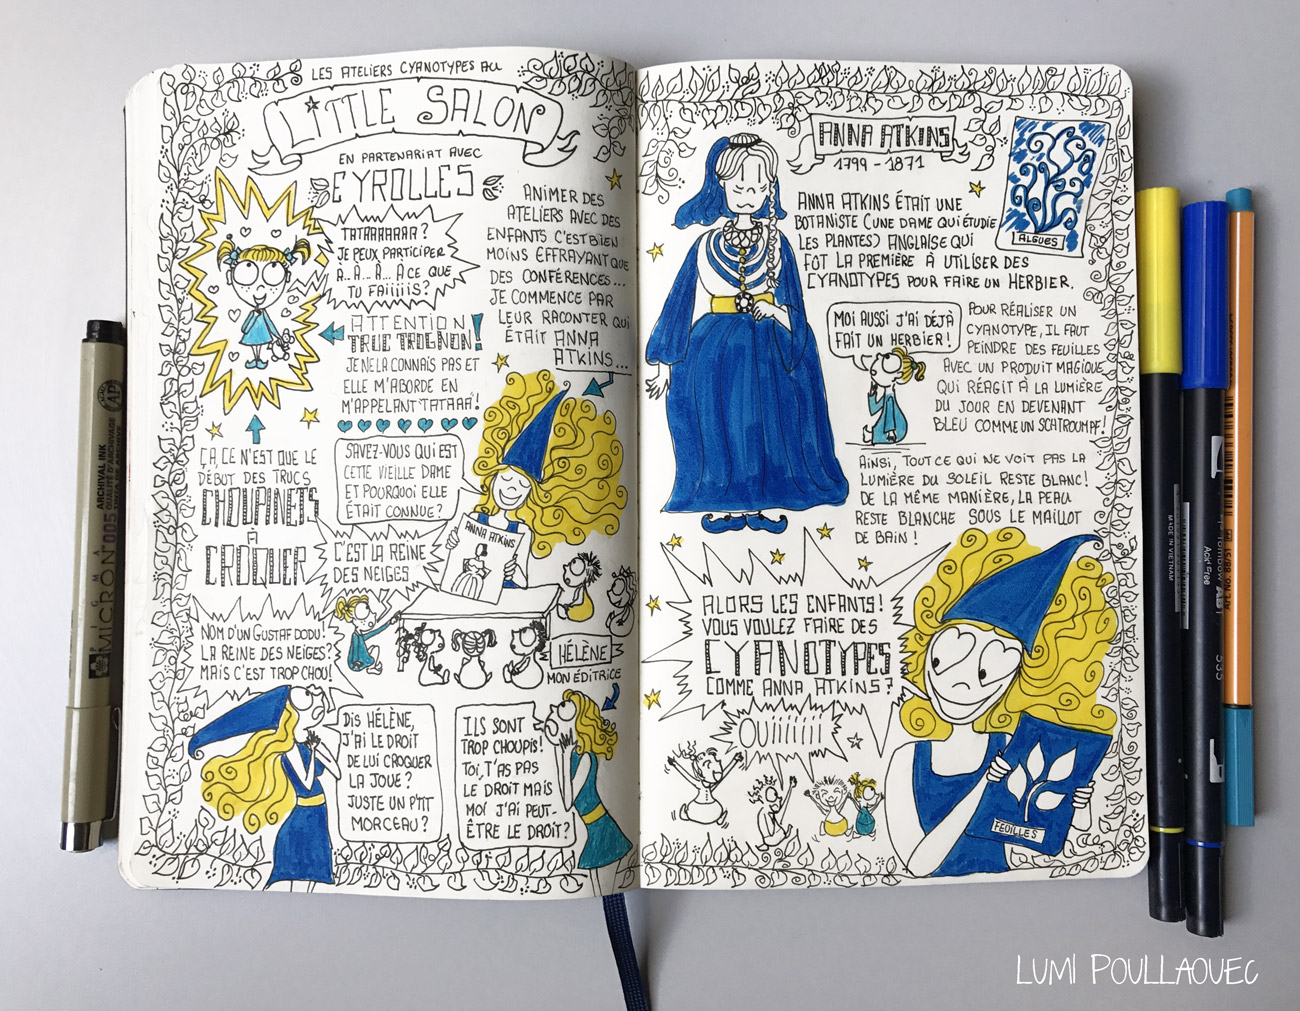 LES ATELIERS CYANOTYPES AU
LITTLE SALON
EN PARTENARIAT AVEC
EYROLLES
TATAAAAAAA ?
JE PEUX PARTICIPER
À... À... À... À CE QUE
TU FAIIIIIS ?
ATTENTION
TRUC TROGNON !
JE NE LA CONNAIS PAS ET
ELLE M'ABORDE EN
M'APPELANT "TATAAA" !
ANIMER DES
ATELIERS AVEC DES
ENFANTS C'EST BIEN
MOINS EFFRAYANT QUE
DES CONFÉRENCES...
JE COMMENCE PAR
LEUR RACONTER QUI
ÉTAIT ANNA
ATKINS...
ÇA, CE N'EST QUE LE
DÉBUT DES TRUCS
CHOUPINETS
À
CROQUER
SAVEZ-VOUS QUI EST
CETTE VIEILLE DAME
ET POURQUOI ELLE
ÉTAIT CONNUE ?
ANNA ATKINS
C'EST LA REINE
DES NEIGES
NOM D'UN GUSTAF DODU !
LA REINE DES NEIGES ?
MAIS C'EST TROP CHOU !
HÉLÈNE
MON ÉDITRICE
DIS HÉLÈNE,
J'AI LE DROIT
DE LUI CROQUER
LA JOUE ?
JUSTE UN P'TIT
MORCEAU ?
ILS SONT
TROP CHOUPIS !
TOI, T'AS PAS
LE DROIT MAIS
MOI J'AI PEUT-
ÊTRE LE DROIT ?
ANNA ATKINS
1799 - 1871
ALGUES
ANNA ATKINS ÉTAIT UNE
BOTANISTE (UNE DAME QUI ÉTUDIE
LES PLANTES) ANGLAISE QUI
FÛT LA PREMIÈRE À UTILISER DES
CYANOTYPES POUR FAIRE UN HERBIER.
MOI AUSSI J'AI DÉJÀ
FAIT UN HERBIER !
POUR RÉALISER UN
CYANOTYPE, IL FAUT
PEINDRE DES FEUILLES
AVEC UN PRODUIT MAGIQUE
QUI RÉAGIT À LA LUMIÈRE
DU JOUR EN DEVENANT
BLEU COMME UN SCHTROUMPF !
AINSI, TOUT CE QUI NE VOIT PAS LA
LUMIÈRE DU SOLEIL RESTE BLANC !
DE LA MÊME MANIÈRE, LA PEAU
RESTE BLANCHE SOUS LE MAILLOT
DE BAIN !
ALORS LES ENFANTS !
VOUS VOULEZ FAIRE DES
CYANOTYPES
COMME ANNA ATKINS ?
OUIIIIIII
FEUILLES
PIGMA
MICRON 005
ARCHIVAL INK
AP
MADE IN VIETNAM
Acid Free
Tombow AB
535
LUMI POULLAOUEC